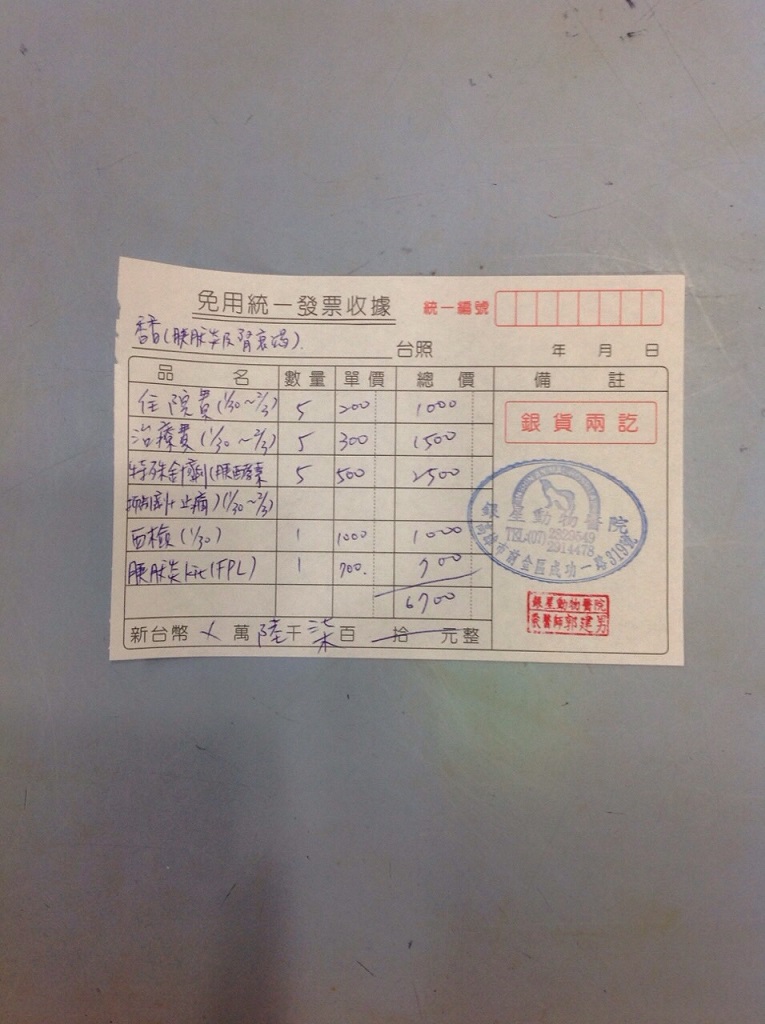 免用統一發票收據
統一編號
香香(胰臟炎及腎衰竭)
台照 年 月 日
品名 數量 單價 總價 備註
住院費(1/30~2/3) 5 200 1000
銀貨兩訖
治療費(1/30~2/3) 5 300 1500
特殊針劑(胰酵素 5 500 2500
抑制劑+止痛)(1/30~2/3)
血檢(1/30) 1 1000 1000
胰臟炎kit(FPL) 1 700. 700
6700
新台幣 萬陸千柒百 拾 元整
銀星動物醫院
TEL(07)2929549
2914478
高雄市前金區成功一路319號
銀星動物醫院
獸醫師郭建男